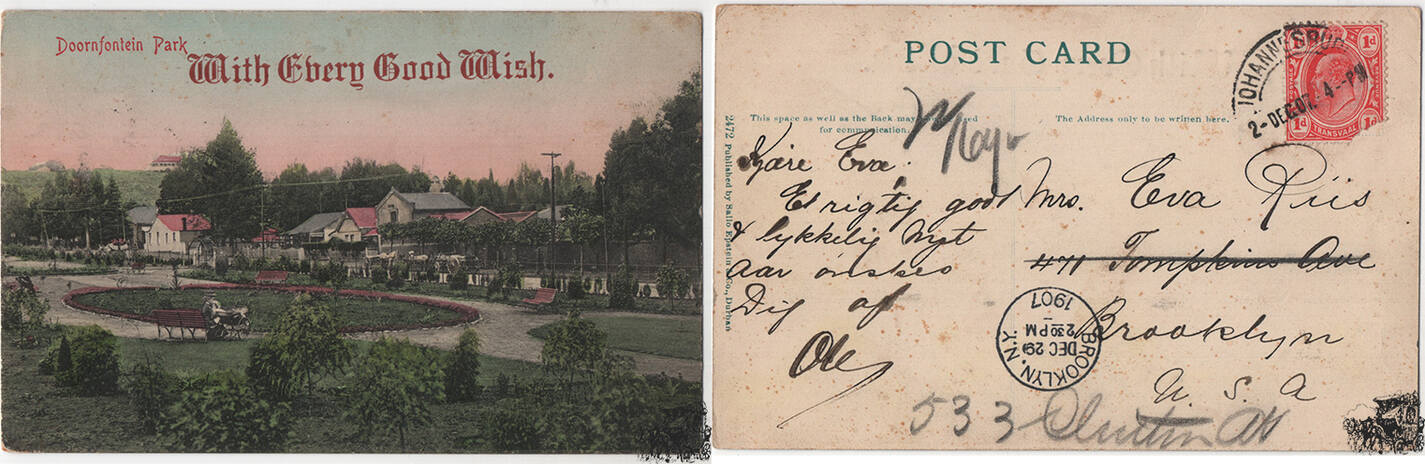 Doornfontein Park
With Every Good Wish.
POST CARD
This space as well as the Back may be used
for communication.
The Address only to be written here.
2472 Published by Sallo Epstein & Co., Durban
JOHANNESBURG
2-DEC.07. 4--PM
1d 1d
TRANSVAAL
1d 1d
Kjære Eva,
Et rigtig godt
& lykkelig Nyt
Aar önskes
Dig af
Ole
Mrs. Eva Riis
471 Tompkins Ave
Brooklyn
U. S. A
533 Clinton
BROOKLYN, N.Y.
DEC 29
2 30 PM
1907